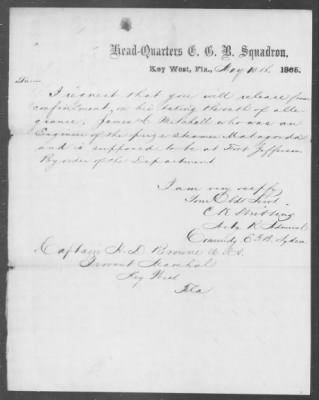 Head-Quarters E. G. B. Squadron,
Key West, Fla., May 10th, 1865.
I request that you will release from
confinement, on his taking the oath of alle
giance, James E. Mitchell who was an
Engineer of the prize steamer Matagorda
and is supposed to be at Fort Jefferson
By order of the Department
I am very respy
Your Obdt Servt
C. K. Stribling
Actg R. Admiral
Comndg E.G.B. Sqdrn
Captain
Browne
Provost Marshal
Key West
Fla